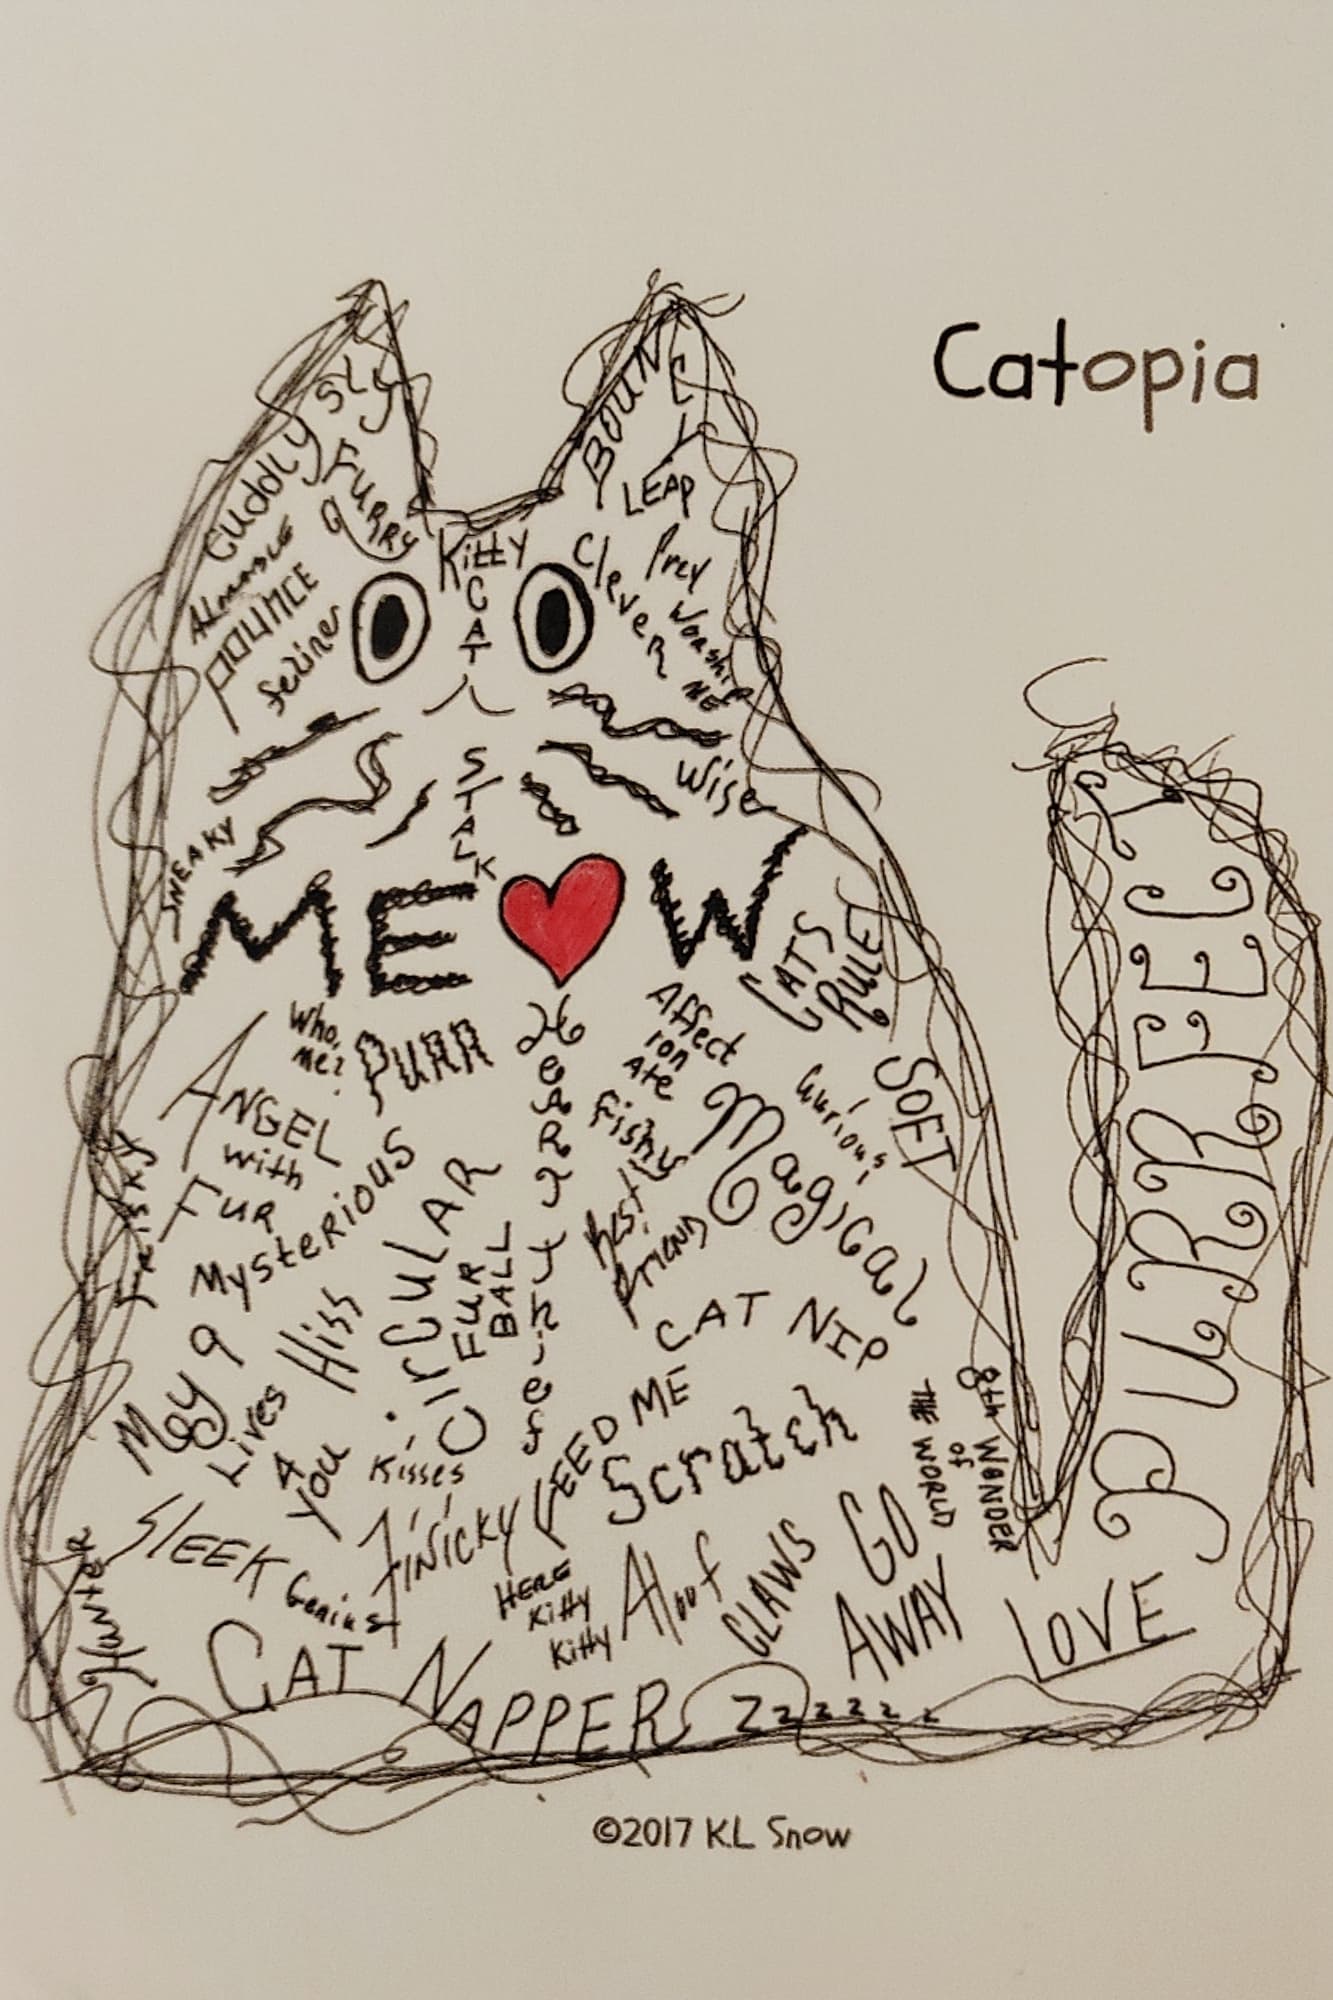 Catopia
SLy
Cuddly
Furry
BOUNCY
LEAP
POUNCE
feline
Kitty
CAT
Clever
Prey
Worship
ME
STALK
Wise
SNEAKY
ME W
CATS
RULE
Who,
me?
PURR
Affect
ion
Ate
Curious
SOFT
ANGEL
with
Fur
Fishy
Magical
Frisky
Mysterious
CirCULAR
FUR
BALL
Best
Friend
CAT NIP
My 9
Lives
4
you
Hiss
Kisses
FEED ME
Scratch
8th WONDER
of
THE WORLD
SLEEK
Genius
FINICKY
HERE
Kitty
Kitty
Aloof
CLAWS
GO
AWAY
Hunter
CAT NAPPER
Zzzzzz
LOVE
PURRFECT
©2017 K.L Snow